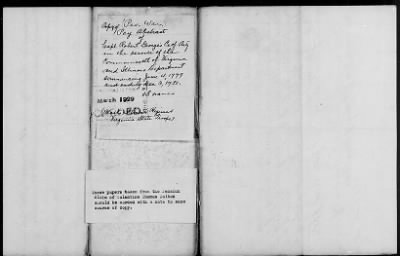 Copy (Rev. War)
Pay Abstract
of
Capt. Robert George's Co. of Arty
in the service of the
Commonwealth of Virginia
and Illinois Department
commencing June 4, 1779
and ending Dec 3, 1781.
names
March 1909
Virginia State Troops
These papers taken from the Pension
Claim of Valentine Thomas Dalton
should be carded with a note to same
source of copy.